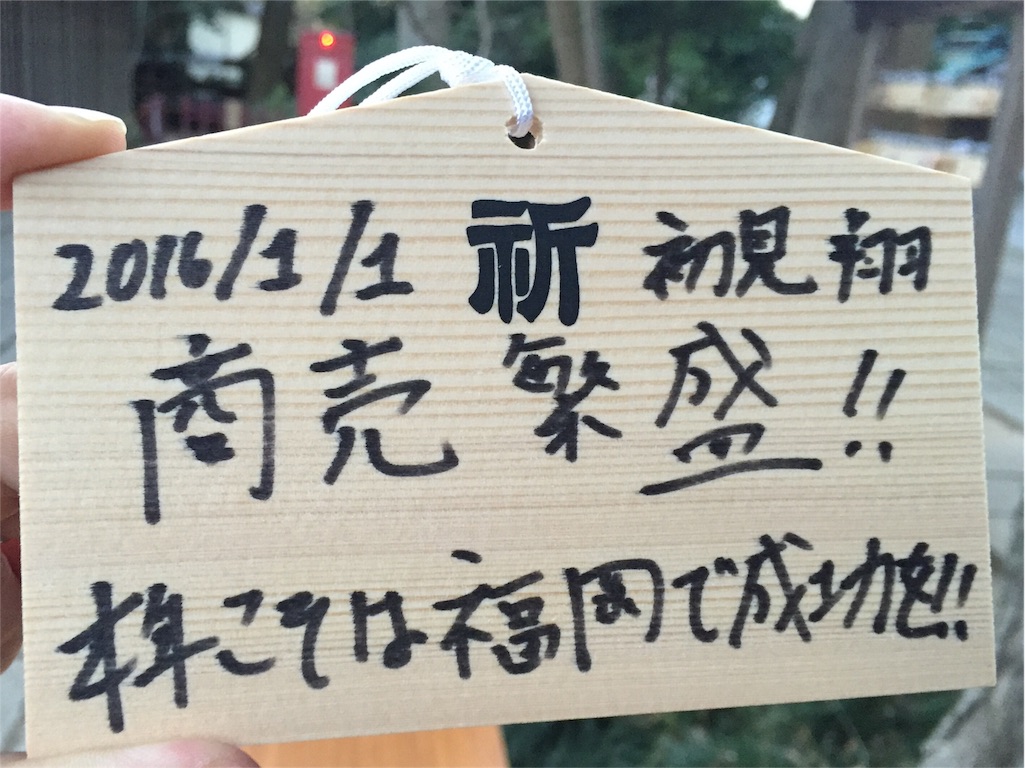 2016/1/1 祈 初見 翔
商売繁盛!!
本年こそは福岡で成功を!!